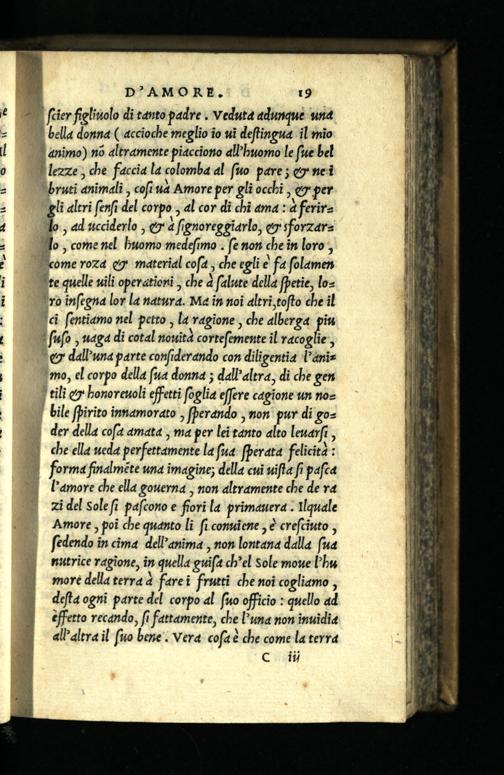 D'AMORE. 19
scier figliuolo di tanto padre. Veduta adunque una
bella donna (accioche meglio io ui destingua il mio
animo) nõ altramente piacciono all'huomo le sue bel
lezze, che faccia la colomba al suo pare; & ne i
bruti animali, cosi uà Amore per gli occhi, & per
gli altri sensi del corpo, al cor di chi ama: à ferir=
lo, ad ucciderlo, & à signoreggiarlo, & sforzar=
lo, come nel huomo medesimo. se non che in loro,
come roza & material cosa, che egli è fa solamen
te quelle uili operationi, che à salute della spetie, lo=
ro insegna lor la natura. Ma in noi altri, tosto che il
ci sentiamo nel petto, la ragione, che alberga piu
suso, uaga di cotal nouità cortesemente il racoglie,
& dall'una parte considerando con diligentia l'ani=
mo, el corpo della sua donna; dall'altra, di che gen
tili & honoreuoli effetti soglia essere cagione un no=
bile spirito innamorato, sperando, non pur di go=
der della cosa amata, ma per lei tanto alto leuarsi,
che ella ueda perfettamente la sua sperata felicità:
forma finalmẽte una imagine; della cui uista si pasca
l'amore che ella gouerna, non altramente che de ra
zi del Sole si pascono e fiori la primauera. Ilquale
Amore, poi che quanto li si conuiene, è cresciuto,
sedendo in cima dell'anima, non lontana dalla sua
nutrice ragione, in quella guisa ch'el Sole moue l'hu
more della terra à fare i frutti che noi cogliamo,
desta ogni parte del corpo al suo officio: quello ad
effetto recando, si fattamente, che l'una non inuidia
all'altra il suo bene. Vera cosa è che come la terra
C iij